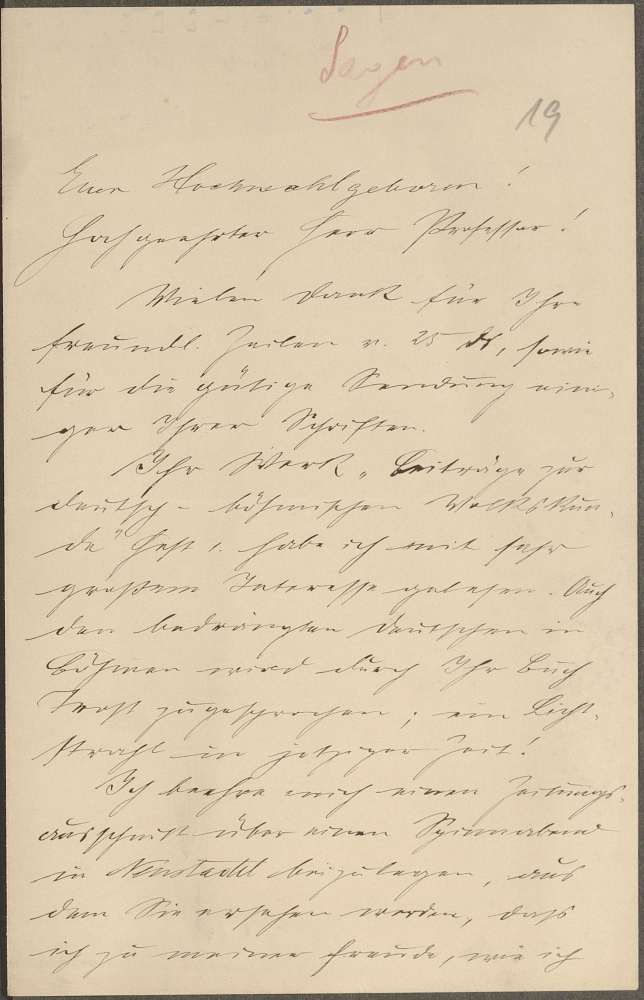 Sagen
19
Euer Hochwohlgeboren!
Hochgeehrter Herr Professor!
Vielen Dank für Ihre
freundl. Zeilen v. 25 ds, sowie
für die gütige Sendung eini-
ger Ihrer Schriften.
Ihr Werk „Beiträge zur
deutsch-böhmischen Volkskun-
de" Heft 1. habe ich mit sehr
großem Interesse gelesen. Auch
den bedrängten Deutschen in
Böhmen wird durch Ihr Buch
Trost zugesprochen; ein Licht-
strahl in jetziger Zeit!
Ich beehre mich einen Zeitungs-
ausschnitt über einen Spinnabend
in Neustadtl beizulegen, aus
dem Sie ersehen werden, daß
ich zu meiner Freude, wie ich